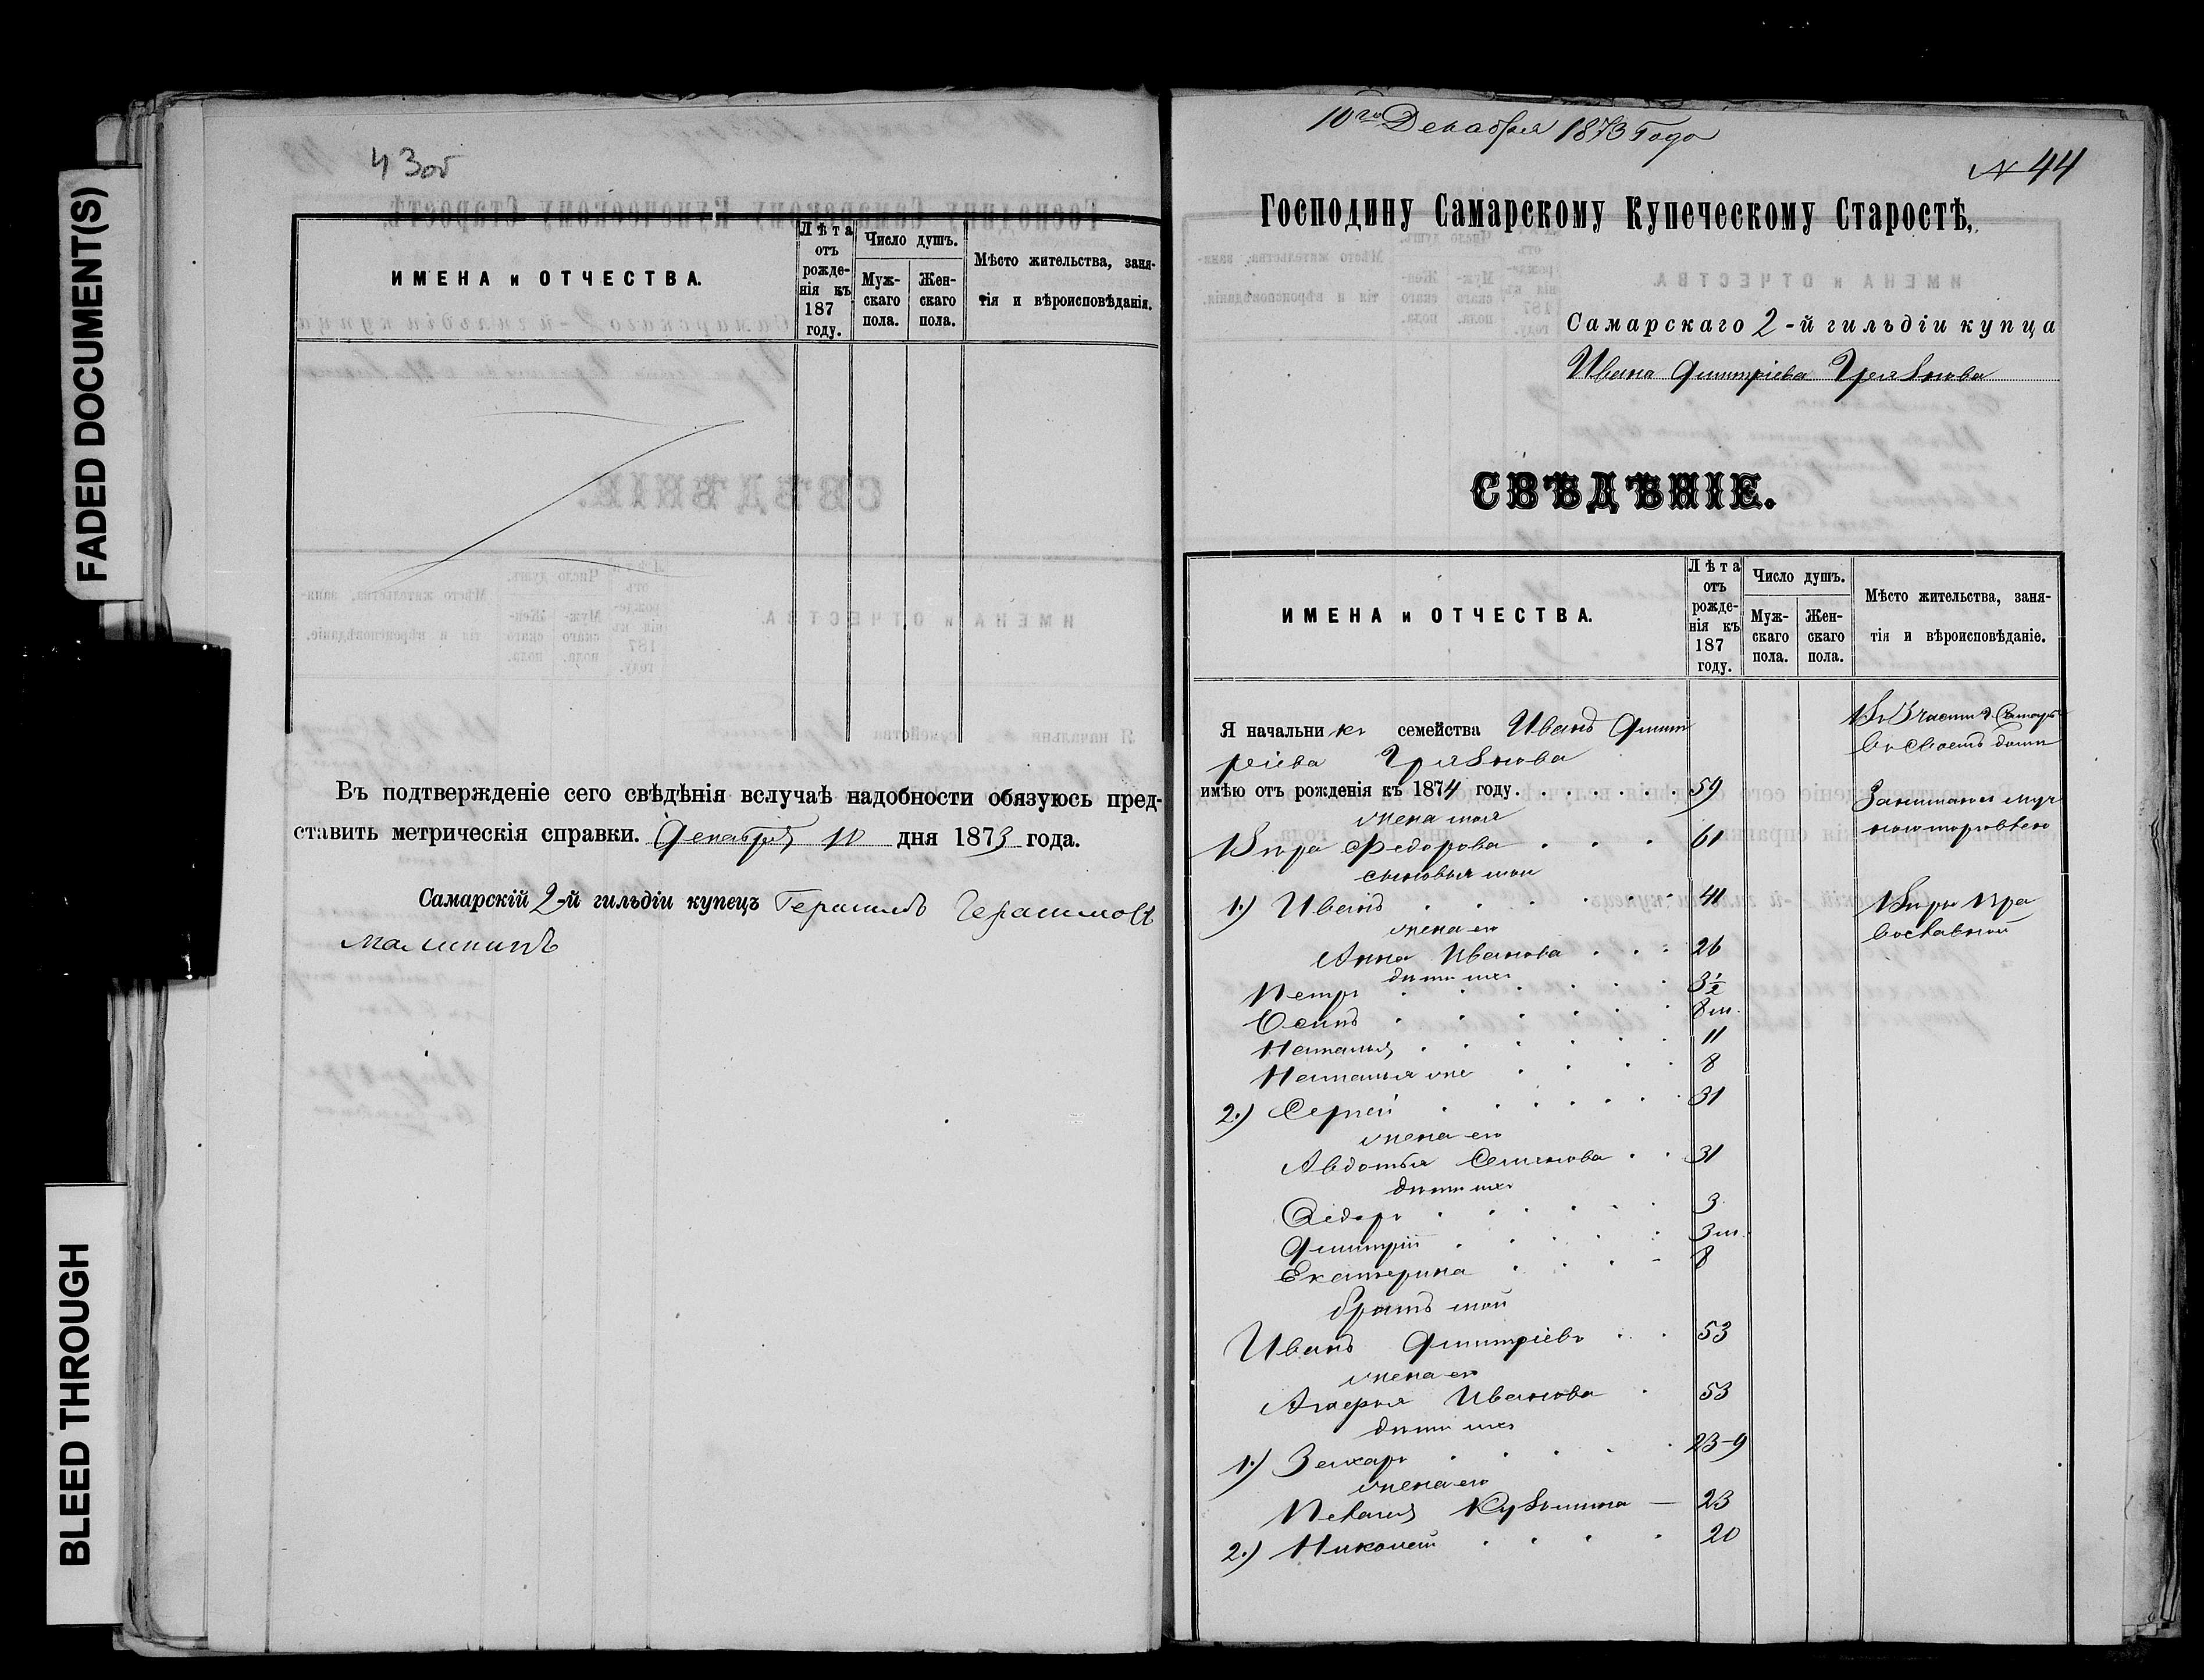 FADED DOCUMENT(S)
BLEED THROUGH
43об
ИМЕНА и ОТЧЕСТВА.
Лѣта отъ рожденія къ 187 году.
Число душъ.
Мужскаго пола.
Женскаго пола.
Мѣсто жительства, заня-
тія и вѣроисповѣданія.
Въ подтвержденіе сего свѣдѣнія вслучаѣ надобности обязуюсь пред-
ставить метрическія справки. Декабря 10 дня 1873 года.
Самарскій 2-й гильдіи купецъ Герасимъ Герасимовъ
10го Декабря 1873 Года
№ 44
Господину Самарскому Купеческому Старостѣ,
Самарскаго 2-й гильдіи купца
Ивана Дмитріева Грязнова
СВѢДѢНІЕ.
ИМЕНА и ОТЧЕСТВА.
Лѣта отъ рожденія къ 187 году.
Число душъ.
Мужскаго пола.
Женскаго пола.
Мѣсто жительства, заня-
тія и вѣроисповѣданіе.
Я начальникъ семейства Иванъ Дмит
ріева Грязнова
имѣю отъ рожденія къ 1874 году. 59
жена моя
Вѣра Федорова 61
сыновья мои
1.) Иванъ 41
жена его
Анна Иванова 26
дѣти ихъ
Петръ 3½
Осипъ 8 м.
Наталья 11
Наталья же 8
2.) Сергей 31
жена его
Авдотья Семенова 31
дѣти ихъ
Федоръ 3
Дмитрій 3 м.
Екатерина 8
братъ мой
Иванъ Дмитріевъ 53
жена его
Иванова 53
дѣти ихъ
1.) Захаръ 23-9
жена его
Пелагия Кузьмина — 23
2.) Николай 20
Въ 3 части г. Самары
въ своемъ доме
Занимаюсь муч
ною торговлею
Вѣры пра
вославной